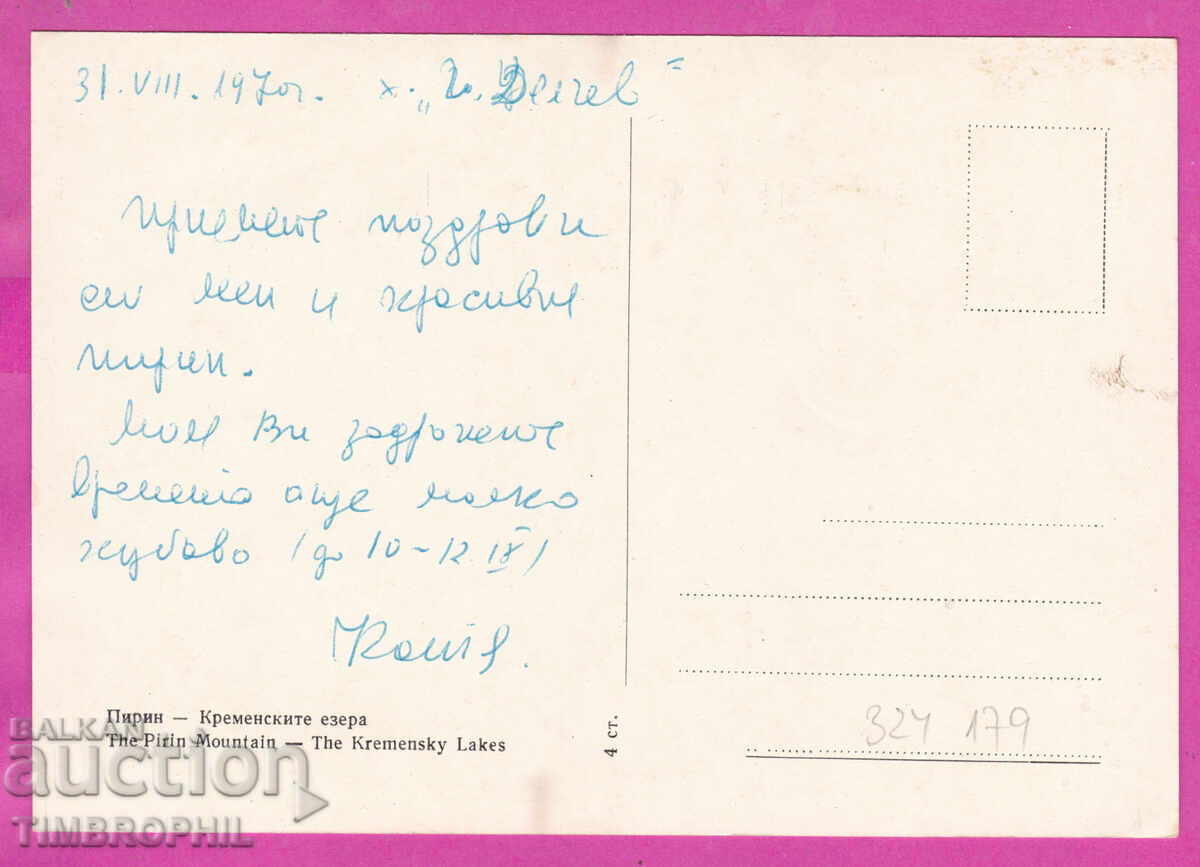 31.VIII.1970г. х. „Г. Делчев"
Приемете поздрави
от мен и красивия
Пирин.
Моля Ви задръжете
времето още малко
хубаво /до 10-12.IX/
Пирин — Кременските езера
The Pirin Mountain — The Kremensky Lakes
4 ст.
324 179
BALKAN
auction
TIMBROPHIL